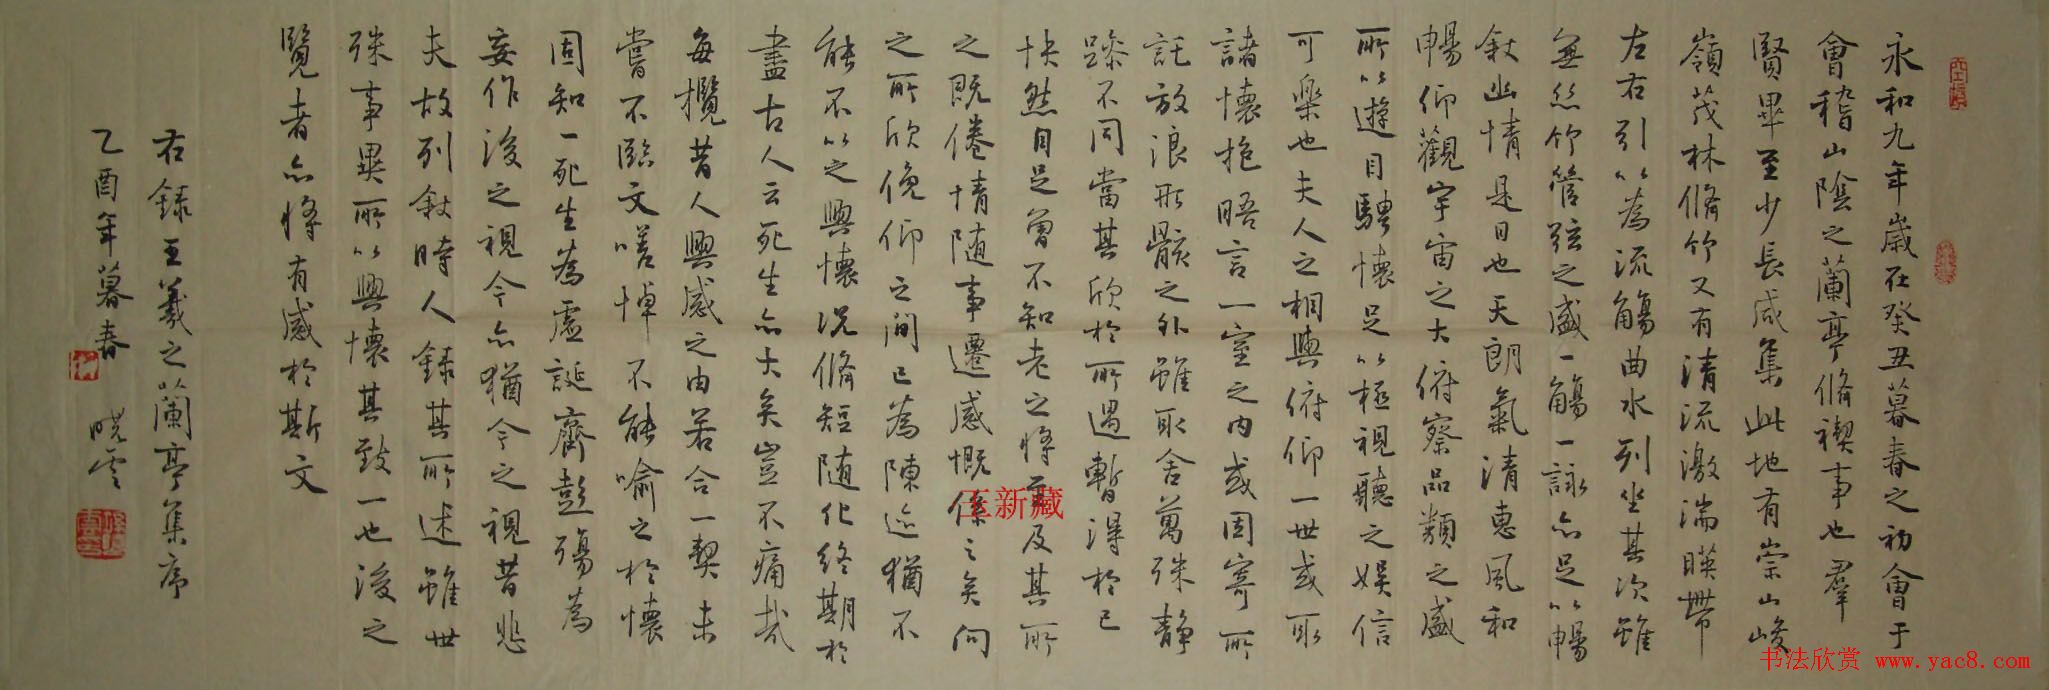 永和九年歲在癸丑暮春之初會于
會稽山陰之蘭亭脩禊事也羣
賢畢至少長咸集此地有崇山峻
嶺茂林脩竹又有清流激湍暎帶
左右引以為流觴曲水列坐其次雖
無絲竹管弦之盛一觴一詠亦足以暢
敘幽情是日也天朗氣清惠風和
暢仰觀宇宙之大俯察品類之盛
所以遊目騁懷足以極視聽之娛信
可樂也夫人之相與俯仰一世或取
諸懷抱晤言一室之內或因寄所
託放浪形骸之外雖取舍萬殊静
躁不同當其欣於所遇暫得於己
快然自足曾不知老之將至及其所
之既倦情随事遷感慨係之矣向
之所欣俛仰之間已為陳迹猶不
能不以之興懷況脩短随化終期於
盡古人云死生亦大矣豈不痛哉
每攬昔人興感之由若合一契未
嘗不臨文嗟悼不能喻之於懷
固知一死生為虛誕齊彭殤為
妄作後之視今亦猶今之視昔悲
夫故列敘時人錄其所述雖世
殊事異所以興懷其致一也後之
覽者亦將有感於斯文
右録王羲之蘭亭集序
乙酉年暮春 曉雲
王新藏
书法欣赏 www.yac8.com